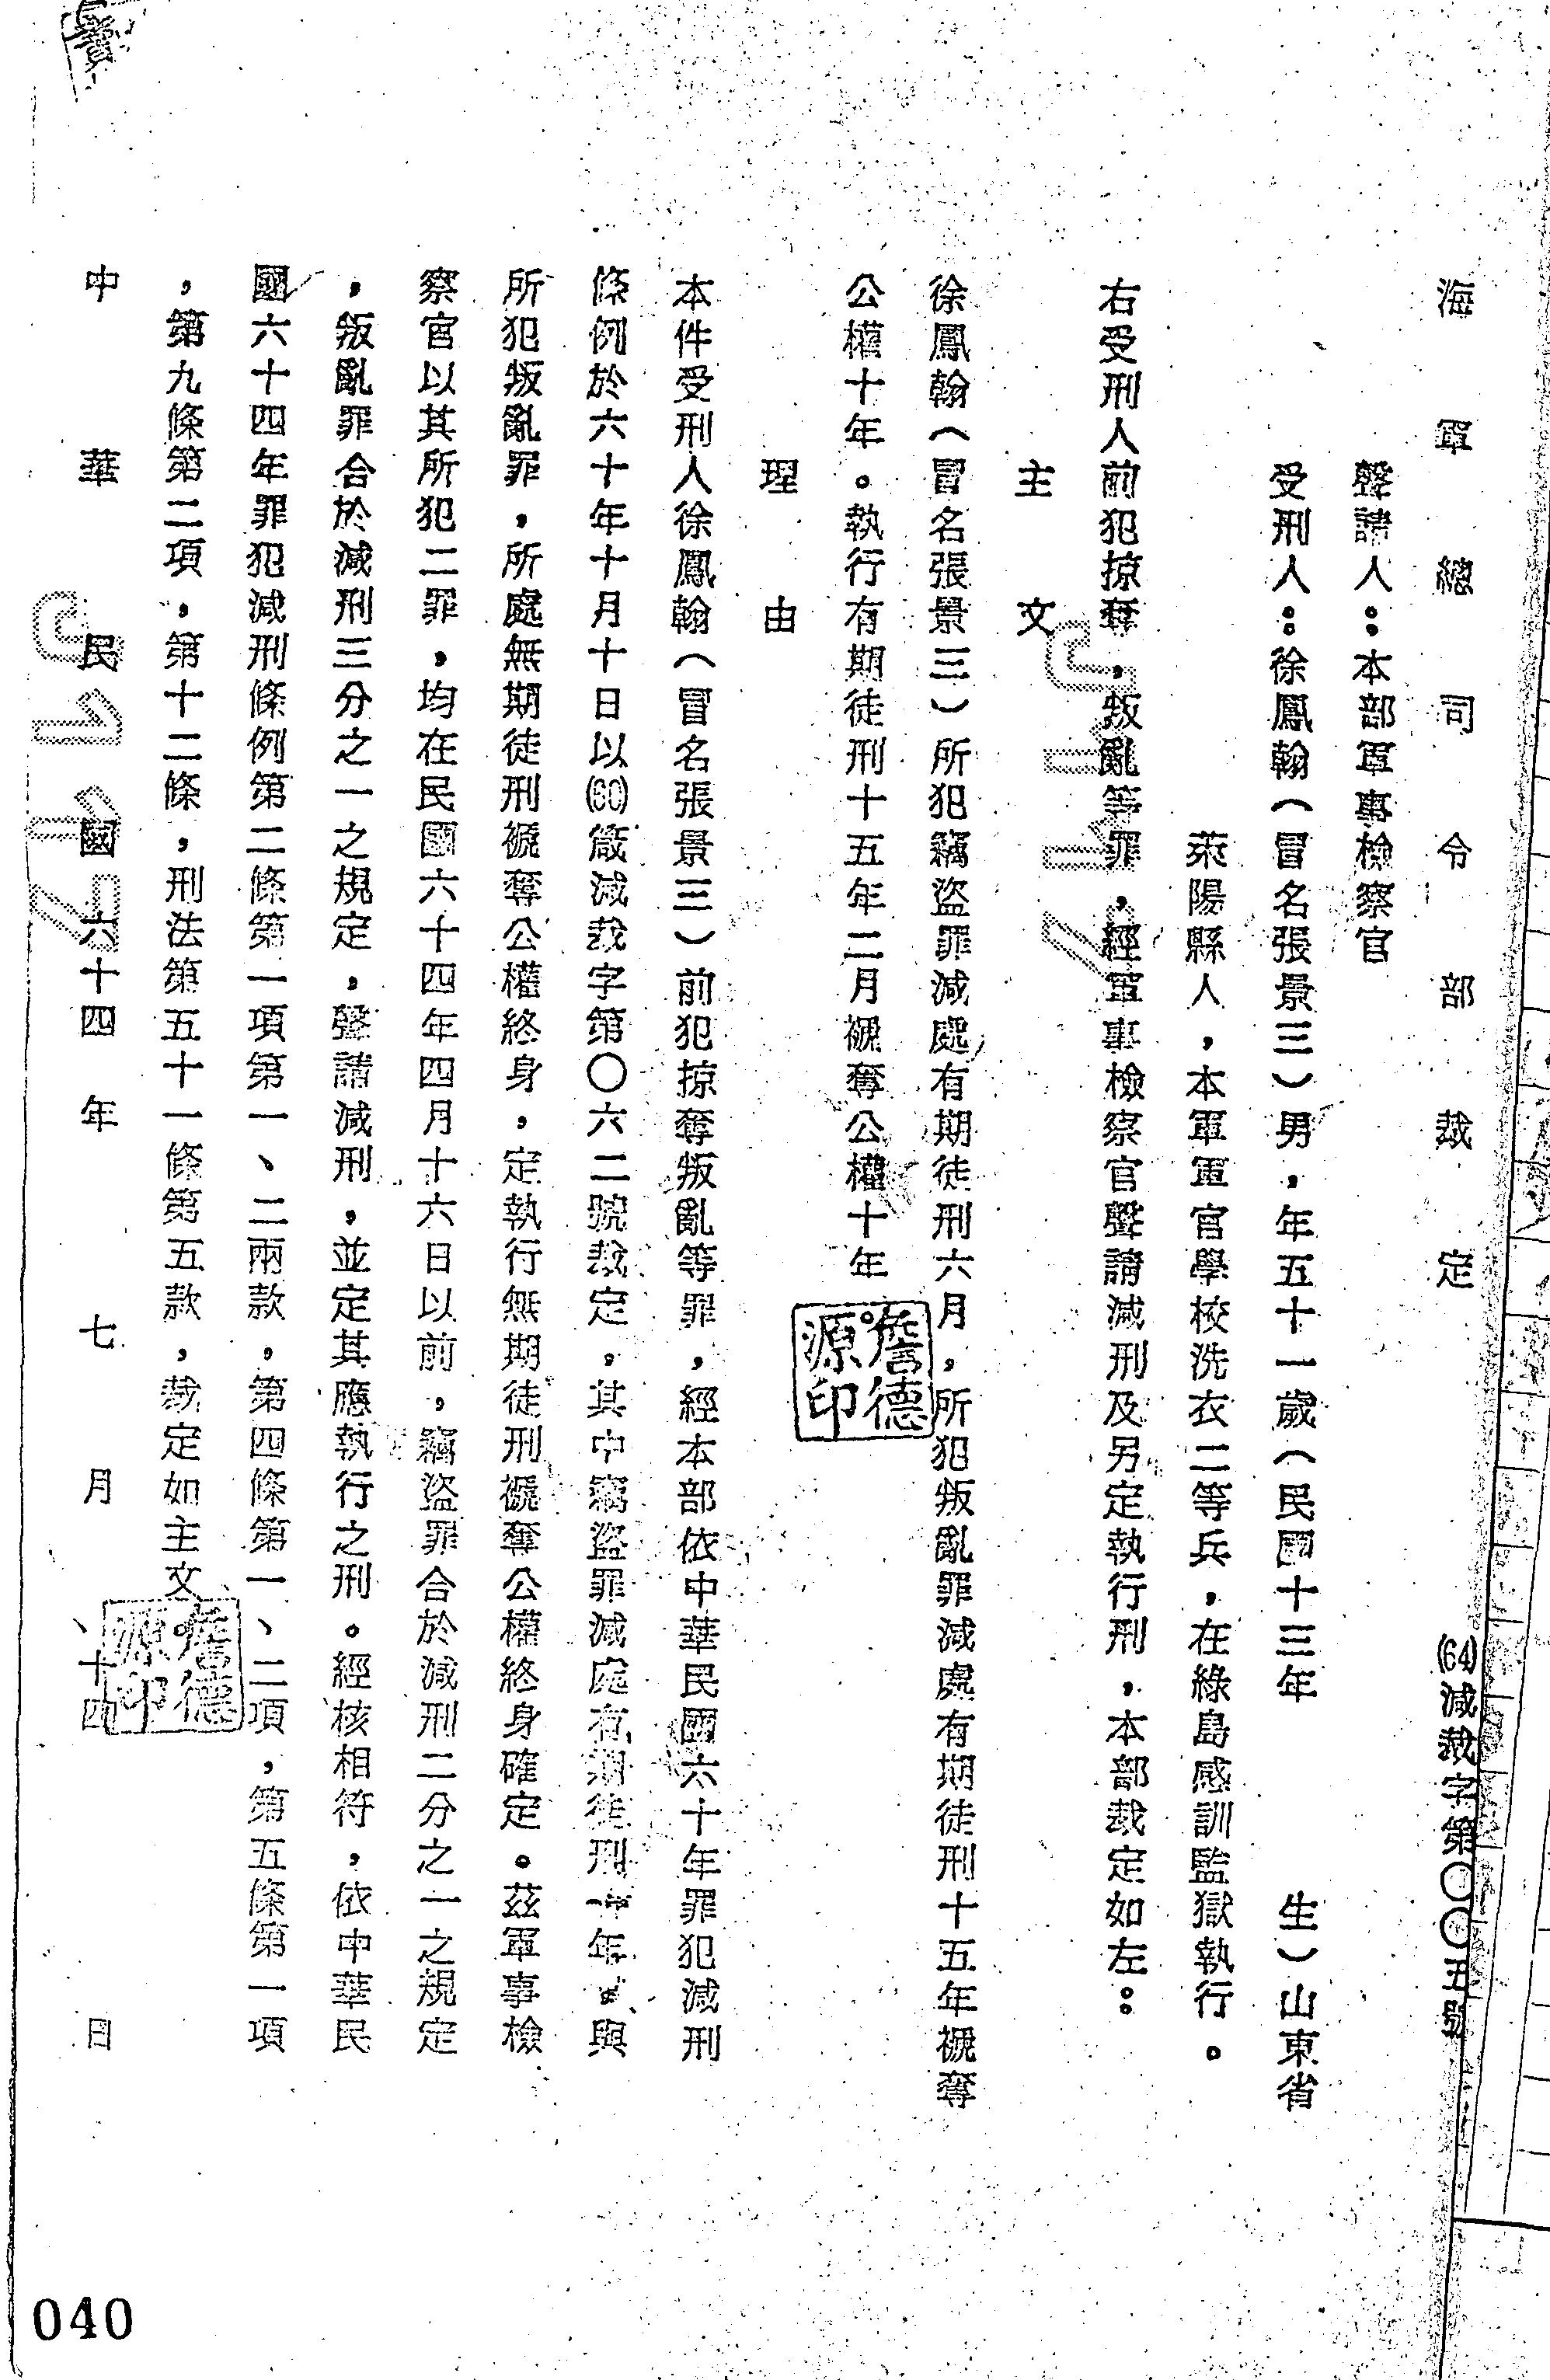 海軍總司令部裁定
(64)減裁字第〇〇五號
聲請人：本部軍事檢察官
受刑人：徐鳳翰（冒名張景三）男，年五十一歲（民國十三年　生）山東省
萊陽縣人，本軍軍官學校洗衣二等兵，在綠島感訓監獄執行。
右受刑人前犯掠奪，叛亂等罪，經軍事檢察官聲請減刑及另定執行刑，本部裁定如左：
主文
徐鳳翰（冒名張景三）所犯竊盜罪減處有期徒刑六月，所犯叛亂罪減處有期徒刑十五年褫奪
公權十年。執行有期徒刑十五年二月褫奪公權十年。
詹德源印
理由
本件受刑人徐鳳翰（冒名張景三）前犯掠奪叛亂等罪，經本部依中華民國六十年罪犯減刑
條例於六十年十月十日以(60)箴減裁字第〇六二號裁定，其中竊盜罪減處有期徒刑一年，與
所犯叛亂罪，所處無期徒刑褫奪公權終身，定執行無期徒刑褫奪公權終身確定。茲軍事檢
察官以其所犯二罪，均在民國六十四年四月十六日以前，竊盜罪合於減刑二分之一之規定
，叛亂罪合於減刑三分之一之規定，聲請減刑，並定其應執行之刑。經核相符，依中華民
國六十四年罪犯減刑條例第二條第一項第一、二兩款，第四條第一、二項，第五條第一項
，第九條第二項，第十二條，刑法第五十一條第五款，裁定如主文。
詹德源印
中華民國六十四年七月十四日
5117
5117
040